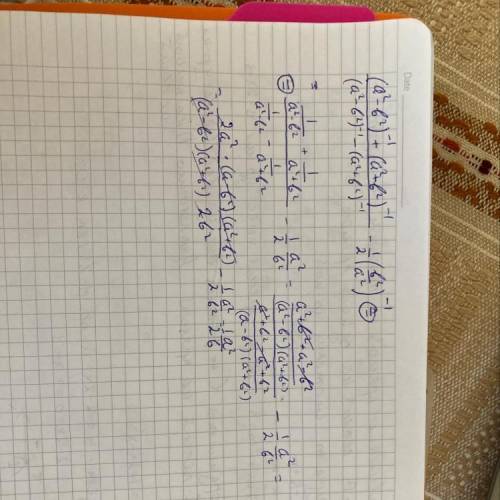 Date
((a²-b²)⁻¹ + (a²+b²)⁻¹)/((a²-b²)⁻¹ - (a²+b²)⁻¹) - 1/2 (b²/a²)⁻¹ ⊜
⊜ (1/(a²-b²) + 1/(a²+b²))/(1/(a²-b²) - 1/(a²+b²)) - 1/2 a²/b² = ((a²+b²+a²-b²)/((a²-b²)(a²+b²)))/((a²+b²-a²+b²)/((a-b²)(a²+b²))) - 1/2 a²/b² =
= (2a² · (a-b²)(a²+b²))/((a²-b²)(a²+b²) 2b²) - 1/2 a²/b² = 1/2 a²/b